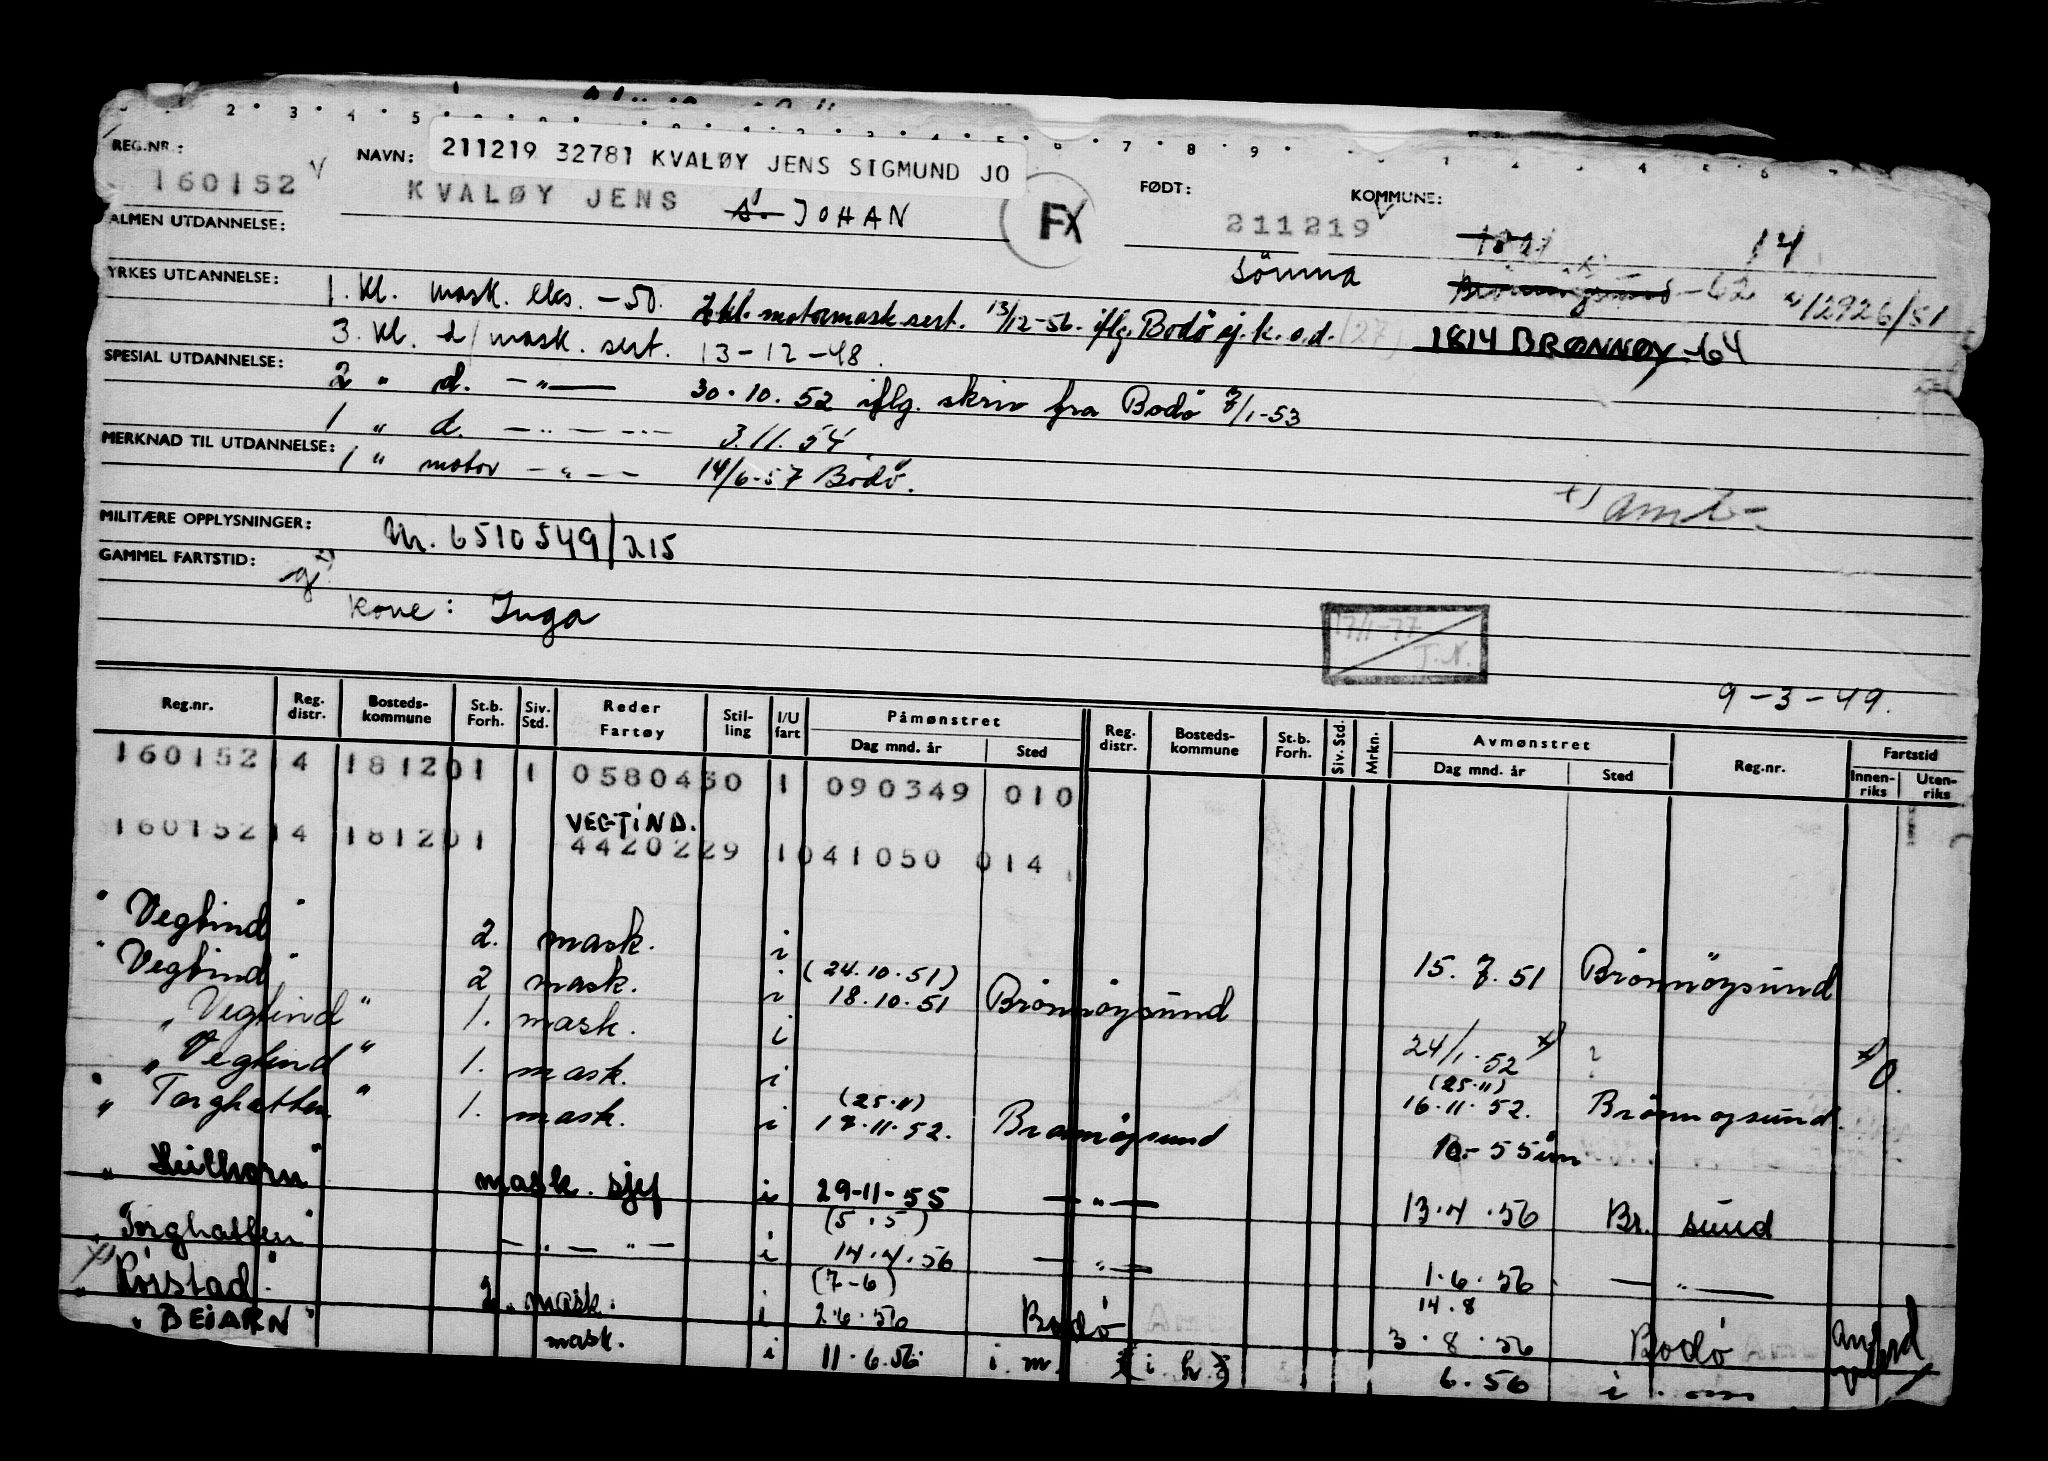 REG.NR.: 160152 NAVN: 211219 32781 KVALØY JENS SIGMUND JO FØDT: KOMMUNE:
KVALØY JENS JOHAN FX 211219 14
ALMEN UTDANNELSE:
Sömna 62 2926/51
YRKES UTDANNELSE: 1. kl. mask. eks. -50. 2 kl. motormask sert. 13/12-56. iflg. Bodö sj. k. o.d. (27) 1814 BRØNNØY -64
3. kl. d/mask. sert. 13-12-48.
SPESIAL UTDANNELSE: 2 " d. - " - 30.10.52 iflg. skriv fra Bodö 7/1-53
1 " d. - " - 3.11.54
MERKNAD TIL UTDANNELSE: 1 " motor - " - 14/6-57 Bodö.
MILITÆRE OPPLYSNINGER: Nr. 6510549/215
GAMMEL FARTSTID:
Kone: Inga
17/1-77 T.N.
9-3-49.
Reg.nr. Reg. distr. Bosteds-kommune St.b. Forh. Siv. Std. Reder Fartøy Stil-ling I/U fart Påmønstret Dag mnd. år Sted Reg. distr. Bosteds-kommune St.b. Forh. Siv. Std. Mrkn. Avmønstret Dag mnd. år Sted Reg.nr. Fartstid Innen-riks Uten-riks
160152 14 1812 01 1 0580430 1 090349 010
VEGTIND.
160152 14 1812 01 4420229 1 041050 014
"Vegtind" 2. mask. i 15.7.51 Brönnöysund
"Vegtind" 2 mask. i (24.10.51) 18.10.51 Brönnöysund
"Vegtind" 1. mask. i 24/1.52 x) ? x) 0.
"Vegtind" 1. mask. i (25.11) 16.11.52. Brönnöysund.
"Torghatten" 1. mask. i (25.11) 17.11.52. Brönnöysund 10-55
"Heilhorn" mask. sjef i 29-11-55 - " - 13.4.56 Br. sund
"Torghatten" - " - " - i (5.5) 14.4.56 - " - 1.6.56 - " -
2. mask. i (7-6) 2.6.56 Bodö 14.8 3.8.56 Bodö
"BEIARN" mask. i 11.6.56 i. m. (i h.) 6.56 i